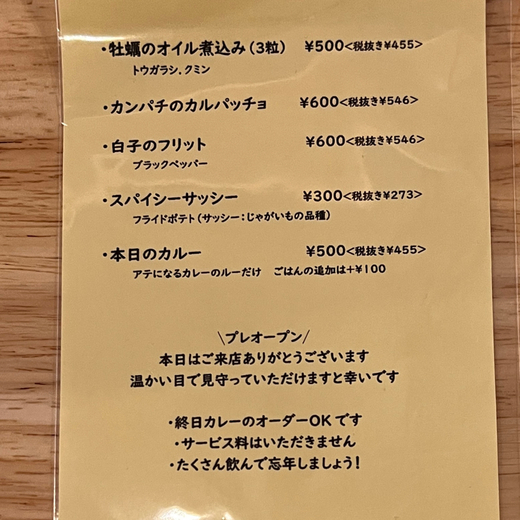 ・牡蠣のオイル煮込み(3粒) ¥500<税抜き¥455>
トウガラシ、クミン
・カンパチのカルパッチョ ¥600<税抜き¥546>
・白子のフリット ¥600<税抜き¥546>
ブラックペッパー
・スパイシーサッシー ¥300<税抜き¥273>
フライドポテト(サッシー:じゃがいもの品種)
・本日のカルー ¥500<税抜き¥455>
アテになるカレーのルーだけ ごはんの追加は+¥100
\プレオープン/
本日はご来店ありがとうございます
温かい目で見守っていただけますと幸いです
・終日カレーのオーダーOKです
・サービス料はいただきません
・たくさん飲んで忘年しましょう!